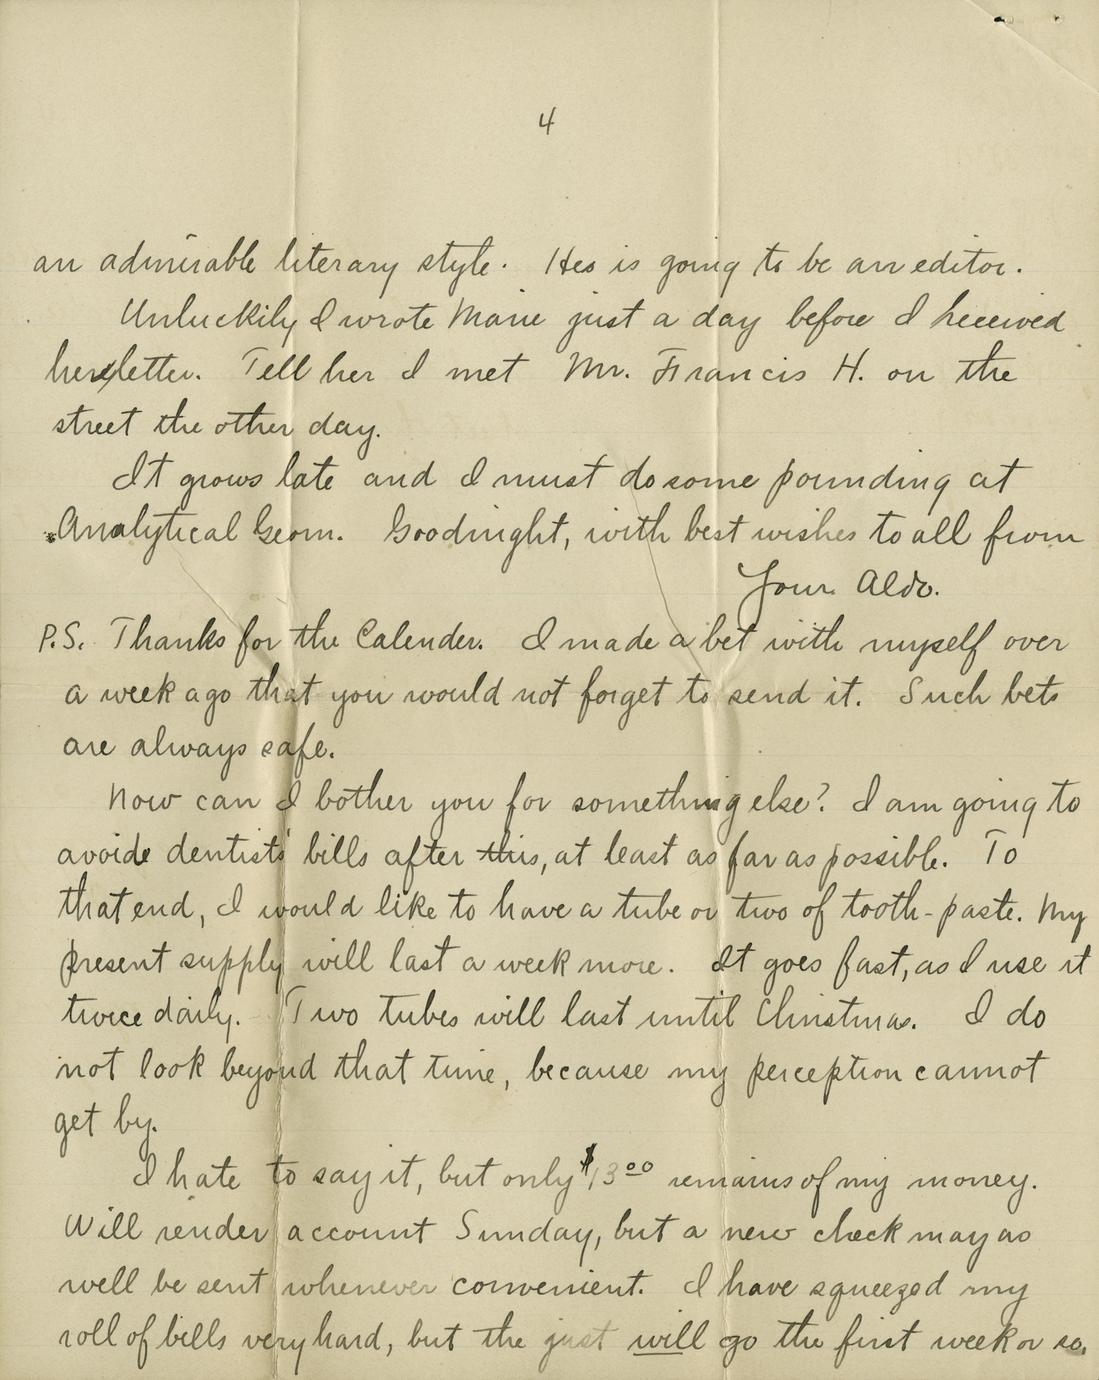 4
an admirable literary style. Hes is going to be an editor.
Unluckily I wrote Marie just a day before I received
her letter. Tell her I met Mr. Francis H. on the
street the other day.
It grows late and I must do some pounding at
Analytical Geom. Goodnight, with best wishes to all from
Your Aldo.
P.S. Thanks for the Calender. I made a bet with myself over
a week ago that you would not forget to send it. Such bets
are always safe.
Now can I bother you for something else? I am going to
avoide dentists' bills after this, at least as far as possible. To
that end, I would like to have a tube or two of tooth-paste. My
present supply will last a week more. It goes fast, as I use it
twice daily. Two tubes will last until Christmas. I do
not look beyond that time, because my perception cannot
get by.
I hate to say it, but only $13.00 remains of my money.
Will render account Sunday, but a new check may as
well be sent whenever convenient. I have squeezed my
roll of bills very hard, but the just will go the first week or so.